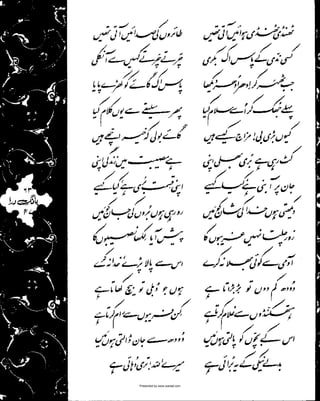 ٹھنڈی ٹھنڈی ہوائیں آتی تھیں طائروں کی صدائیں آتی تھیں
کسی ندی کے پاس اک بکری چرتے چرتے کہیں سے آ نکلی
جب ٹھہر کر ادھر ادھر دیکھا پاس اک گائے کو کھڑے پایا
پہلے جھک کر اسے سلام کیا پھر سلیقے سے یوں کلام کیا
کیوں بڑی بی! مزاج کیسے ہیں گائے بولی کہ خیر اچھے ہیں
کٹ رہی ہے بری بھلی اپنی ہے مصیبت میں زندگی اپنی
جان پر آ بنی ہے، کیا کہیے اپنی قسمت بری ہے، کیا کہیے
دیکھتی ہوں خدا کی شان کو میں رو رہی ہوں بروں کی جان کو میں
زور چلتا نہیں غریبوں کا پیش آیا لکھا نصیبوں کا
آدمی سے کوئی بھلا نہ کرے اس سے پالا پڑے، خدا نہ کرے
دودھ کم دوں تو بڑبڑاتا ہے ہوں جو دبلی تو بیچ کھاتا ہے
ہتھکنڈوں سے غلام کرتا ہے کن فریبوں سے رام کرتا ہے
اس کے بچوں کو پالتی ہوں میں دودھ سے جان ڈالتی ہوں میں
بدلے نیکی کے یہ برائی ہے میرے اللہ! تری دہائی ہے
بانگ درا
Presented by www.ziaraat.com